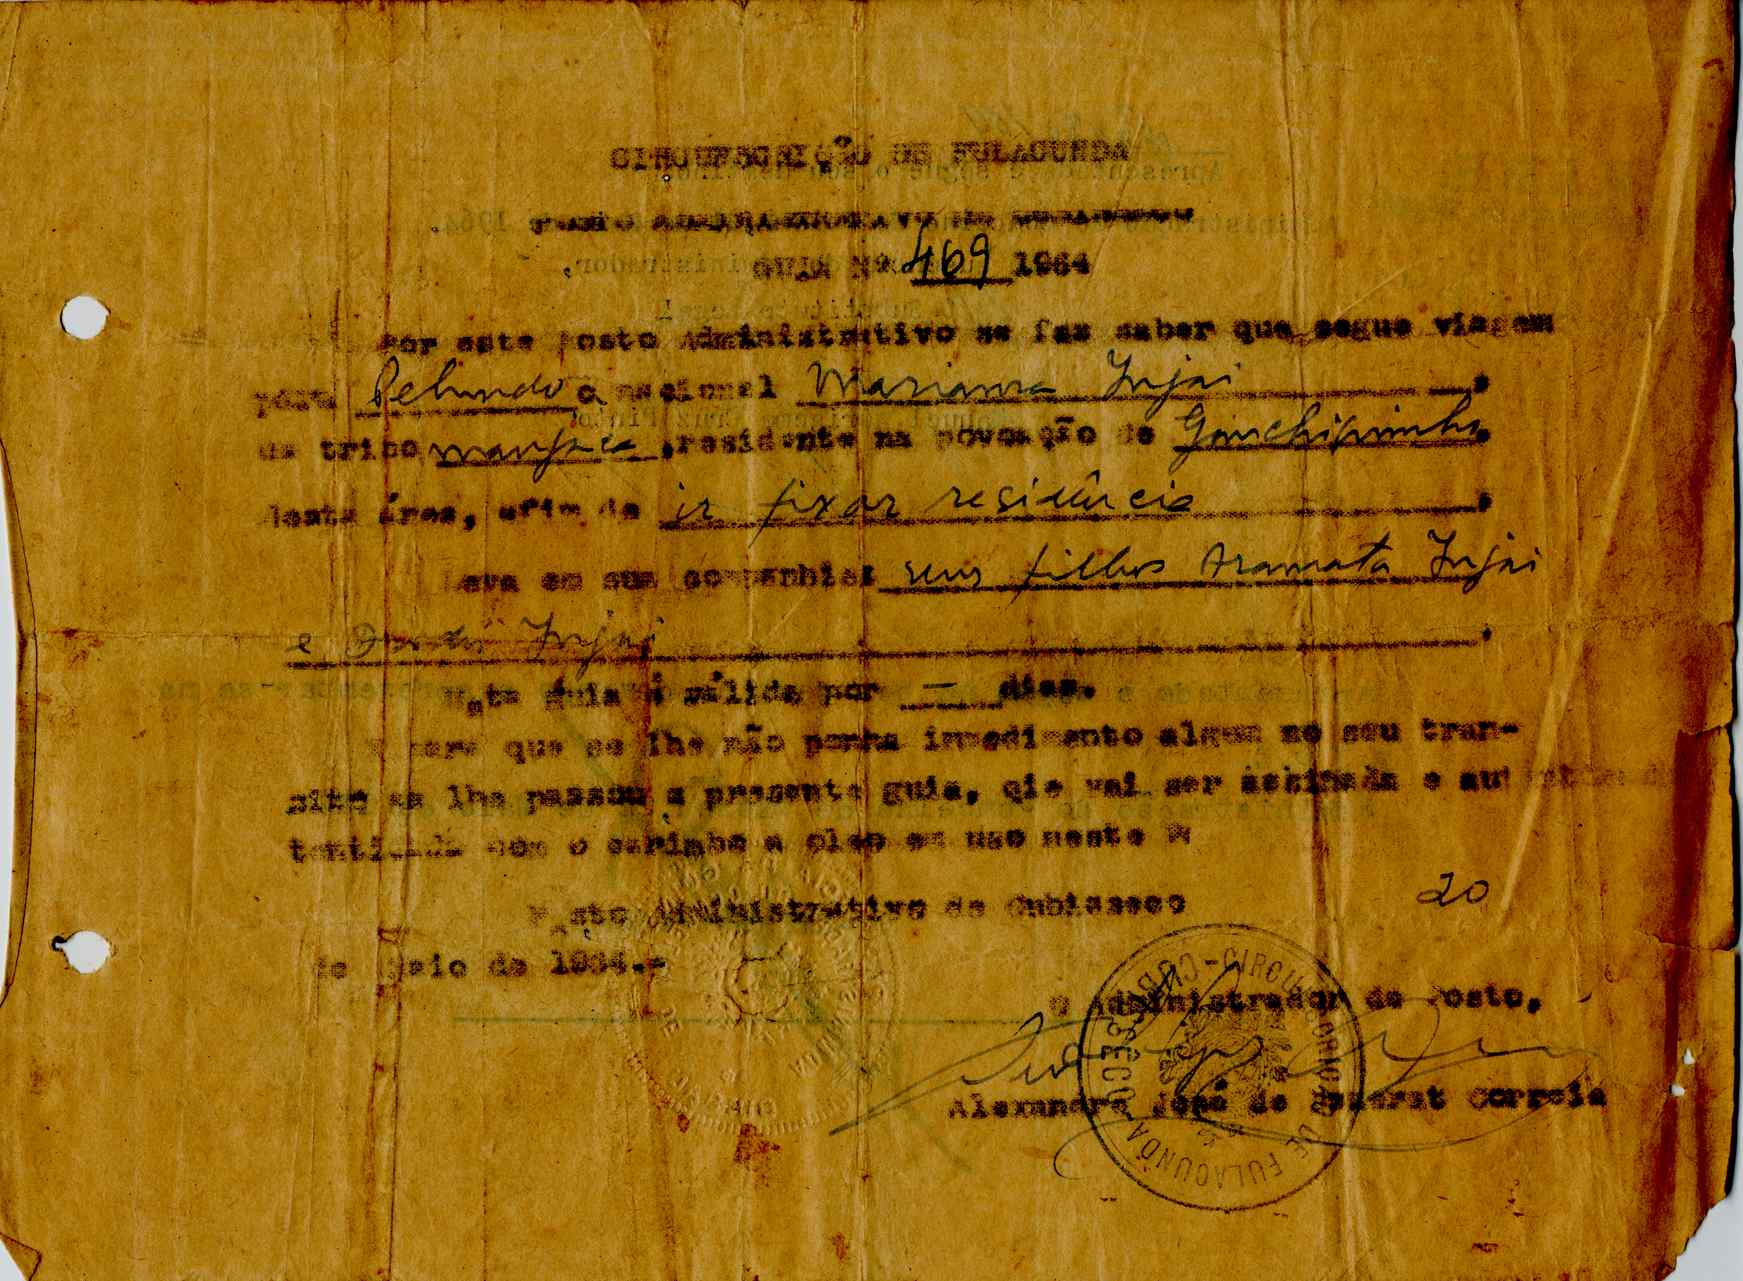 CIRCUNSCRIÇÃO DE FULACUNDA
POSTO ADMINISTRATIVO DE
GUIA Nº 469 1964
Por este Posto Administrativo se faz saber que segue viagem
para Pelundo o nacional Mariama Injai,
da tribo manjaca, residente na povoação de
desta área, afim de ir fixar residência,
Leva em sua companhia: seus filhos Aramata Injai
e Injai.
Esta guia é válida por — dias.
E para que se lhe não ponha impedimento algum no seu tran-
sito se lhe passou a presente guia, qie vai ser assinada e au
tenticada com o carimbo a oleo em uso neste P
Posto Administrativo de Cubisseco 20
de Maio de 1964.-
O Administrador de Posto,
Alexandre José de Correia
CIRCUNSCRIÇÃO DE FULACUNDA - CUBISSECO